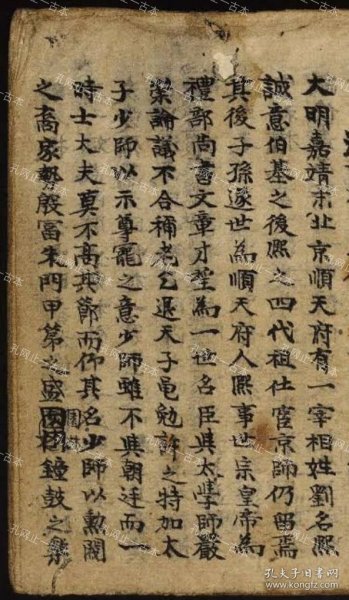 大明嘉靖末北京順天府有一宰相姓劉名熙
誠意伯基之後熙之四代祖仕宦京師仍留焉
其後子孫遂世為順天府人熙事世宗皇帝為
禮部尚書文章才望為一世名臣與太學師嚴
崇論議不合稱老乞退天子黽勉許之特加太
子少師以示尊寵之意少師雖不與朝廷而一
時士大夫莫不高其節而仰其名少師以勳閥
之裔家勢殷富朱門甲第之盛園林鐘鼓之
孔网止一古本
孔夫子旧书网